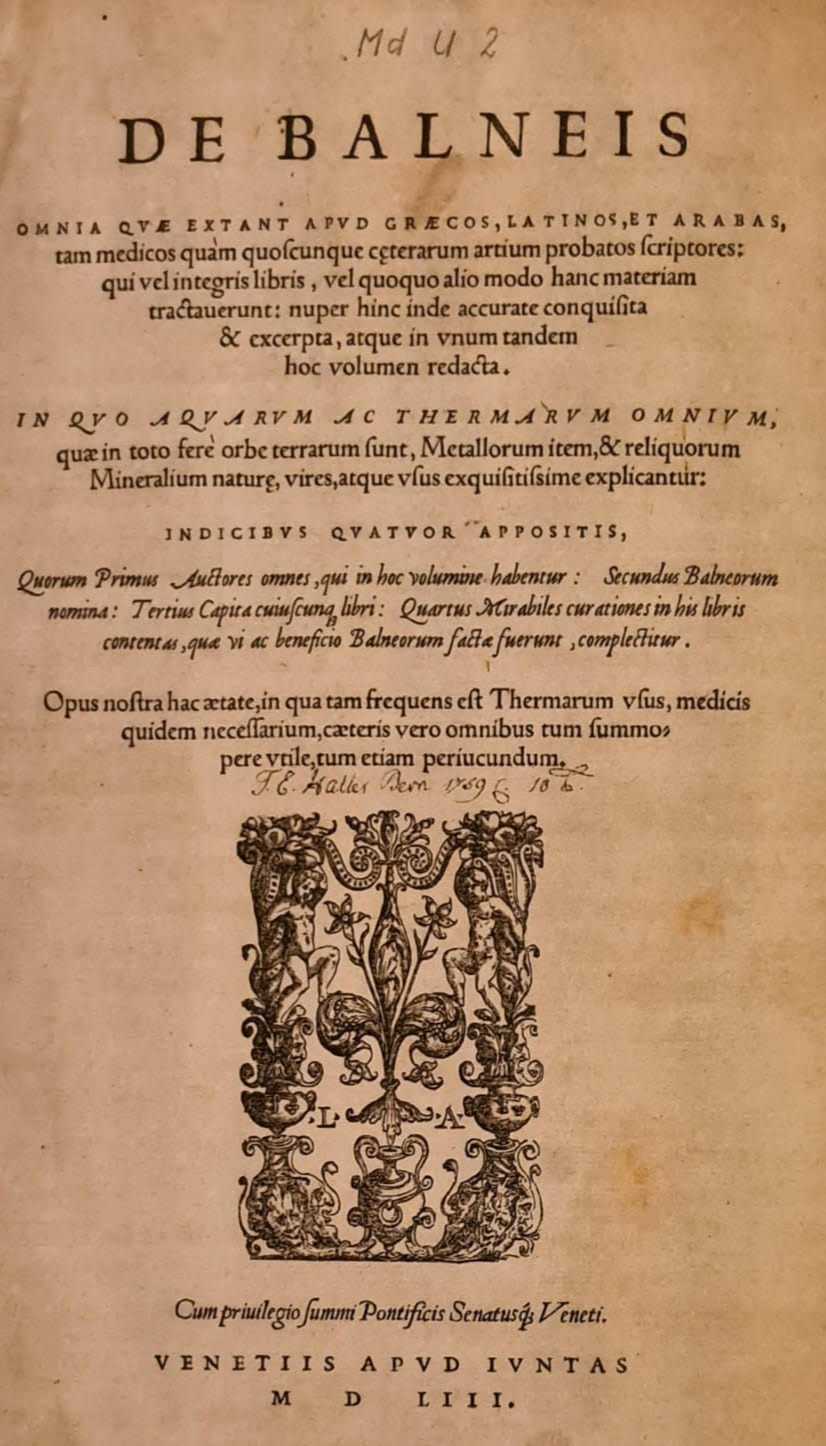 Md U 2
DE BALNEIS
OMNIA QVÆ EXTANT APVD GRÆCOS, LATINOS, ET ARABAS,
tam medicos quàm quoſcunque cęterarum artium probatos ſcriptores:
qui vel integris libris, vel quoquo alio modo hanc materiam
tractauerunt: nuper hinc inde accurate conquiſita
& excerpta, atque in vnum tandem
hoc volumen redacta.
IN QVO AQVARVM AC THERMARVM OMNIVM,
quæ in toto ferè orbe terrarum ſunt, Metallorum item, & reliquorum
Mineralium naturę, vires, atque vſus exquiſitiſsime explicantur:
INDICIBVS QVATVOR APPOSITIS,
Quorum Primus Auctores omnes, qui in hoc volumine habentur: Secundus Balneorum
nomina: Tertius Capita cuiuſcunq; libri: Quartus Mirabiles curationes in his libris
contentas, quæ vi ac beneficio Balneorum factæ fuerunt, complectitur.
Opus noſtra hac ætate, in qua tam frequens eſt Thermarum vſus, medicis
quidem neceſſarium, cæteris vero omnibus tum ſummo-
pere vtile, tum etiam periucundum.
Haller Bern 1759
.L. .A.
Cum priuilegio ſummi Pontificis Senatusq́; Veneti.
VENETIIS APVD IVNTAS
M D LIII.